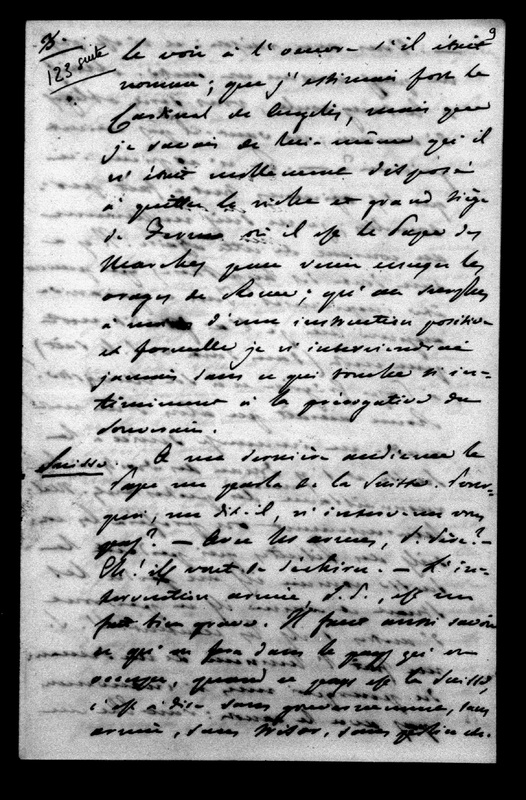 123 suite
9
le voir à l'oeuvre s'il était
nommé ; que j'estimais fort le
Cardinal de Angelis, mais que
je savais de lui-même qu'il
n'était nullement disposé
à quitter le riche et grand siège
de Fermo où il est le Pape des
Marches pour venir essuyer les
orages de Rome ; qu'au surplus
à moins d'une instruction positive
et formelle je n'interviendrai
jamais dans ce qui touche si in-
timément à la prérogative du
Souverain.
Suisse. À ma dernière audience le
Pape me parla de la Suisse. Pour-
quoi, me dit-il, n'intervenez vous
pas ? — Avec les armes, S. Père ? —
Eh ! ils vont se déchirer. — L'in-
tervention armée, S. S., est un
fait bien grave. Il faut aussi savoir
ce qu'on fera dans le pays qu'on
occupe, quand ce pays est la Suisse,
c'est à dire sans gouvernement, sans
armée, sans trésor, sans